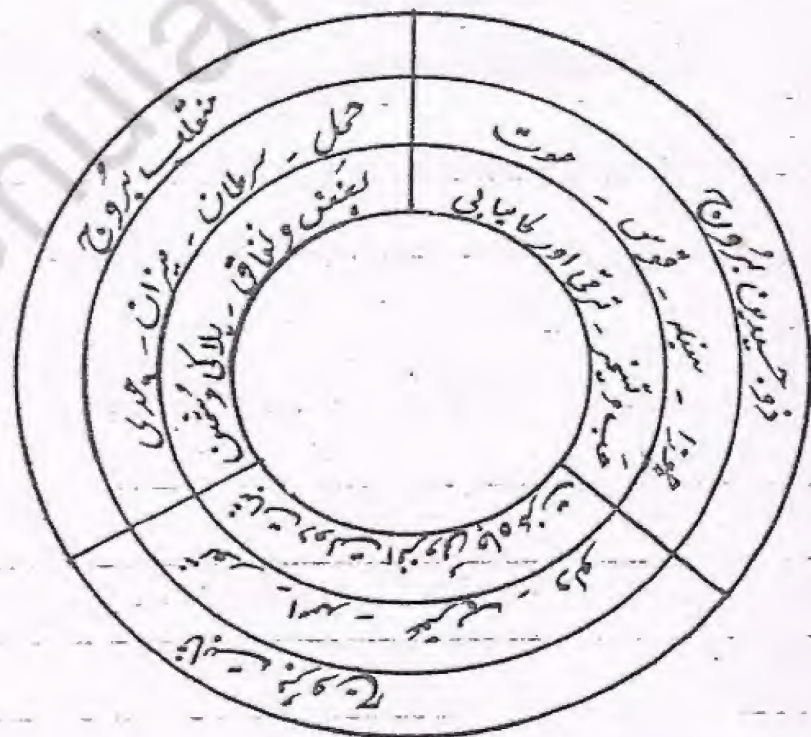 منقلب بروج
حمل - سرطان - میزان - جدی
بغض و نفاق - ہلاکی دشمن
ذو جسدین بروج
جوزا - سنبلہ - قوس - حوت
تسخیر - ترقی اور کامیابی
ثابت بروج
ثور - اسد - عقرب - دلو